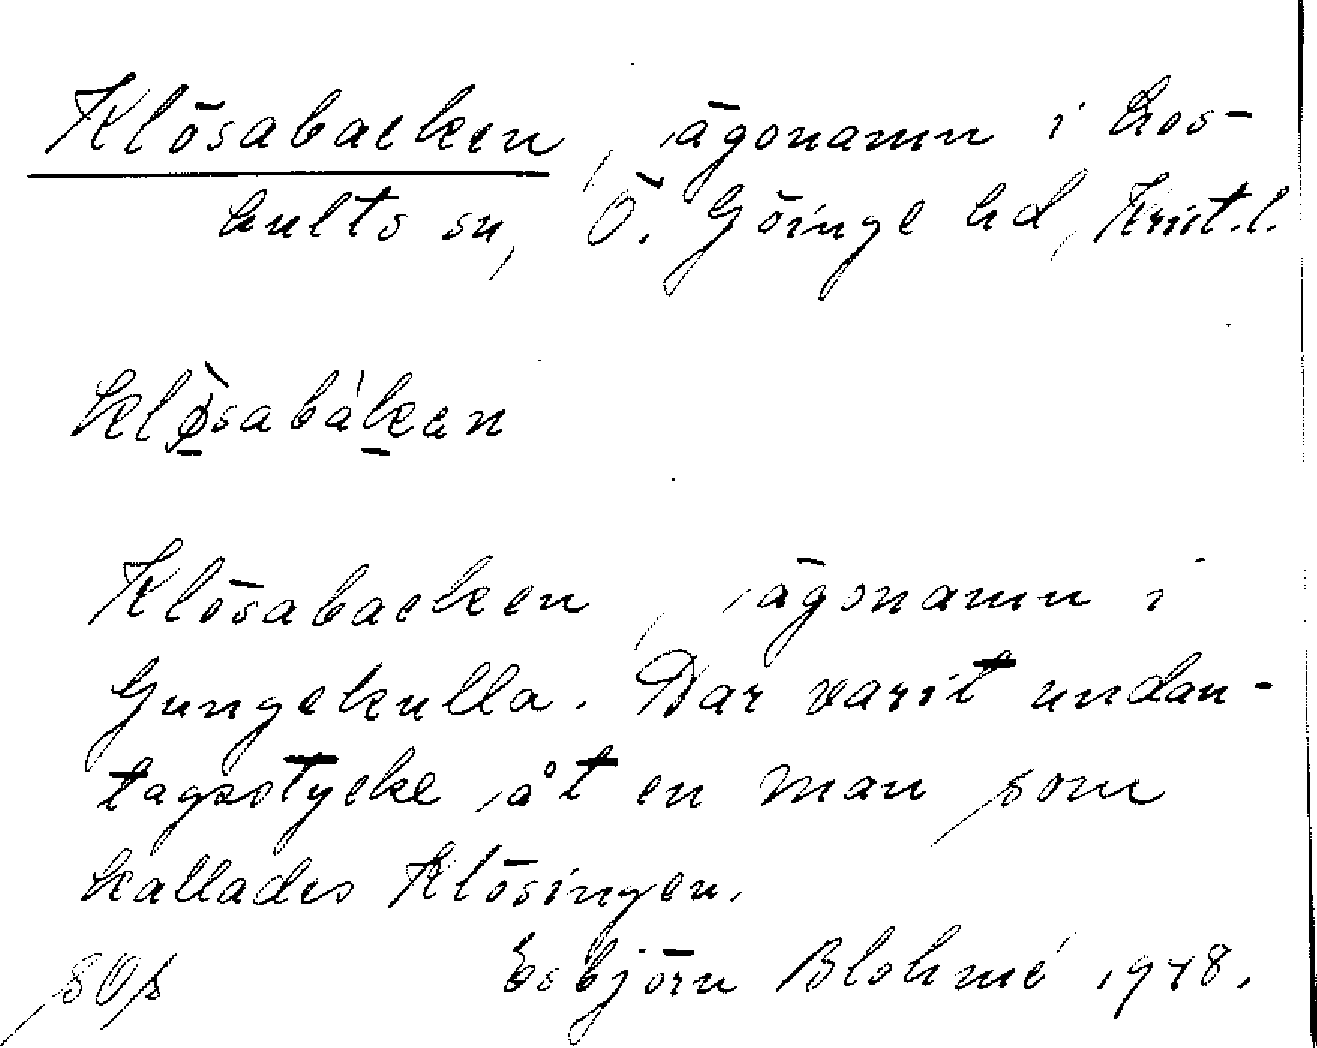 Klösabacken, ägonamn i Los-
hults sn, Ö. Göinge hd, Krist.l.
klø̀sabàkan
Klösabacken, ägonamn i
Gungekulla. Där varit undan-
tagsstycke åt en man som
kallades Klösingen.
Esbjörn Blohmé 1948.